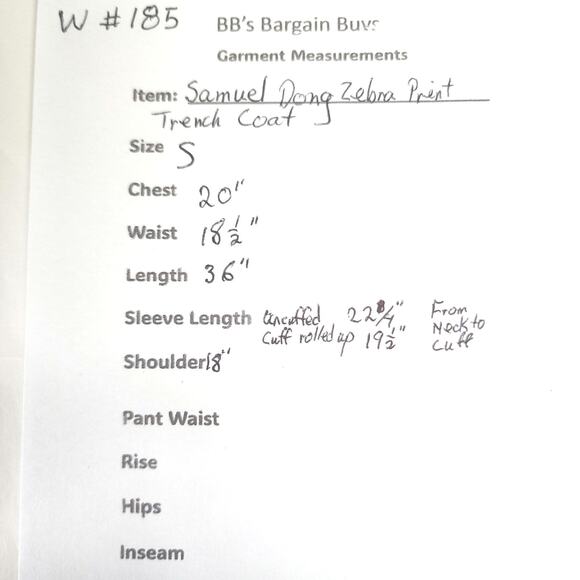 W #185 BB's Bargain Buys
Garment Measurements
Item: Samuel Dong Zebra Print
Trench Coat
Size S
Chest 20"
Waist 18 1/2"
Length 36"
Sleeve Length Uncuffed 22 3/4" From
Cuff rolled up 19 1/2" Neck to
Cuff
Shoulder 18"
Pant Waist
Rise
Hips
Inseam